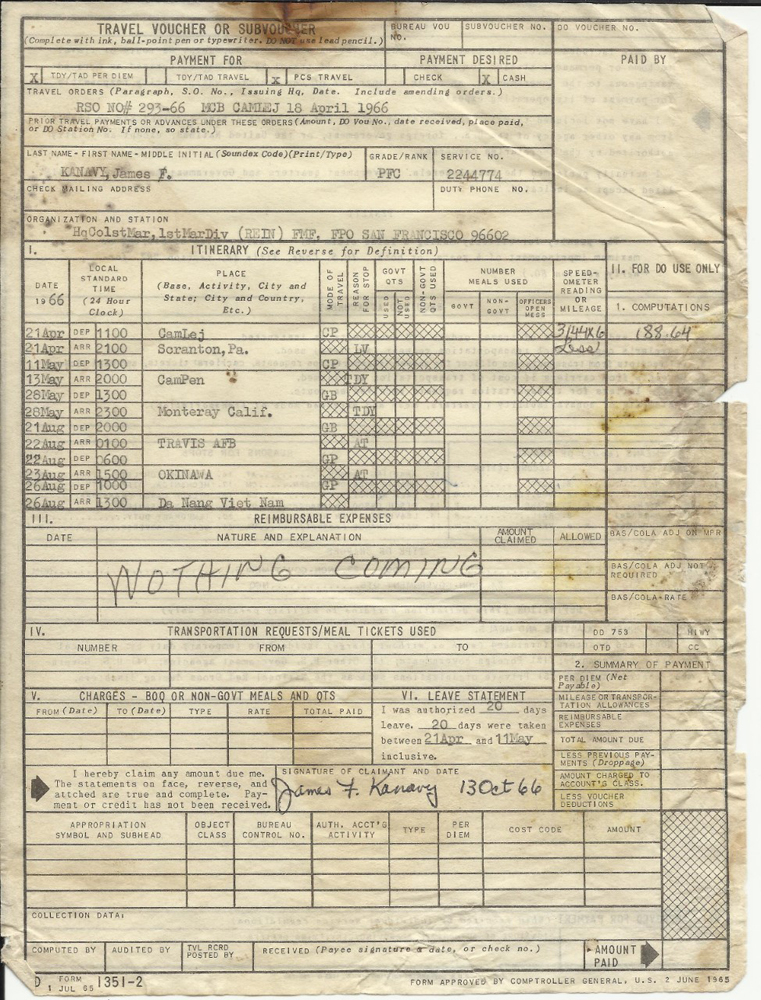 TRAVEL VOUCHER OR SUBVOUCHER
(Complete with ink, ball-point pen or typewriter. DO NOT use lead pencil.)
BUREAU VOU NO.
SUBVOUCHER NO.
DO VOUCHER NO.
PAYMENT FOR
PAYMENT DESIRED
PAID BY
X TDY/TAD PER DIEM
TDY/TAD TRAVEL
X PCS TRAVEL
CHECK
X CASH
TRAVEL ORDERS (Paragraph, S.O. No., Issuing Hq, Date. Include amending orders.)
RSO NO# 293-66 MCB CAMLEJ 18 April 1966
PRIOR TRAVEL PAYMENTS OR ADVANCES UNDER THESE ORDERS (Amount, DO Vou No., date received, place paid,
or DO Station No. If none, so state.)
LAST NAME - FIRST NAME - MIDDLE INITIAL (Soundex Code)(Print/Type)
GRADE/RANK
SERVICE NO.
KANAVY, James F.
PFC
2244774
CHECK MAILING ADDRESS
DUTY PHONE NO.
ORGANIZATION AND STATION
HqCo1stMar, 1stMarDiv (REIN) FMF, FPO SAN FRANCISCO 96602
I. ITINERARY (See Reverse for Definition)
II. FOR DO USE ONLY
DATE 1966
LOCAL STANDARD TIME (24 Hour Clock)
PLACE (Base, Activity, City and State; City and Country, Etc.)
MODE OF TRAVEL
REASON FOR STOP
GOVT QTS
USED
NOT USED
NON-GOVT QTS USED
NUMBER MEALS USED
GOVT
NON-GOVT
OFFICERS OPEN MESS
SPEED-OMETER READING OR MILEAGE
1. COMPUTATIONS
21Apr DEP 1100 CamLej CP 3144x6 188.64
21Apr ARR 2100 Scranton, Pa. LV Less
11May DEP 1300 CP
13May ARR 2000 CamPen TDY
28May DEP 1300 GB
28May ARR 2300 Monteray Calif. TDY
21Aug DEP 2000 GB
22Aug ARR 0100 TRAVIS AFB AT
22Aug DEP 0600 GP
23Aug ARR 1500 OKINAWA AT
26Aug DEP 1000 GP
26Aug ARR 1300 Da Nang Viet Nam
III. REIMBURSABLE EXPENSES
DATE
NATURE AND EXPLANATION
AMOUNT CLAIMED
ALLOWED
BAS/COLA ADJ ON MPR
NOTHING COMING
BAS/COLA ADJ NOT REQUIRED
BAS/COLA-RATE
IV. TRANSPORTATION REQUESTS/MEAL TICKETS USED
DD 753
HIWY
NUMBER
FROM
TO
OTD
CC
2. SUMMARY OF PAYMENT
PER DIEM (Net Payable)
V. CHARGES - BOQ OR NON-GOVT MEALS AND QTS
VI. LEAVE STATEMENT
MILEAGE OR TRANSPORTATION ALLOWANCES
FROM (Date)
TO (Date)
TYPE
RATE
TOTAL PAID
I was authorized 20 days
leave. 20 days were taken
between 21Apr and 11May
inclusive.
REIMBURSABLE EXPENSES
TOTAL AMOUNT DUE
LESS PREVIOUS PAYMENTS (Droppage)
AMOUNT CHARGED TO ACCOUNT'S CLASS.
LESS VOUCHER DEDUCTIONS
I hereby claim any amount due me.
The statements on face, reverse, and
attched are true and complete. Pay-
ment or credit has not been received.
SIGNATURE OF CLAIMANT AND DATE
James F. Kanavy 13 Oct 66
APPROPRIATION SYMBOL AND SUBHEAD
OBJECT CLASS
BUREAU CONTROL NO.
AUTH. ACCT'G ACTIVITY
TYPE
PER DIEM
COST CODE
AMOUNT
COLLECTION DATA:
COMPUTED BY
AUDITED BY
TVL RCRD POSTED BY
RECEIVED (Payee signature & date, or check no.)
AMOUNT PAID
D FORM 1 JUL 65 1351-2
FORM APPROVED BY COMPTROLLER GENERAL, U.S. 2 JUNE 1965